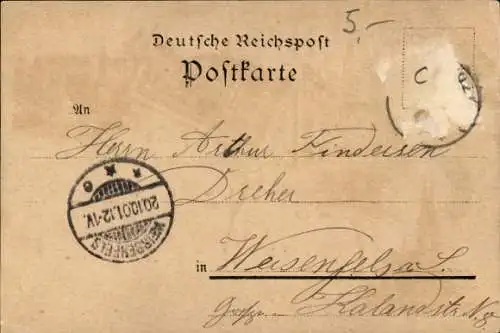 5.-
Deutsche Reichspost
Postkarte
C
An
Herrn Arthur Findeisen
Dreher
WEISSENFELS
20.10.01.12-1V.
* * c
in Weisengels a. S.
Kalandstr. No. 8